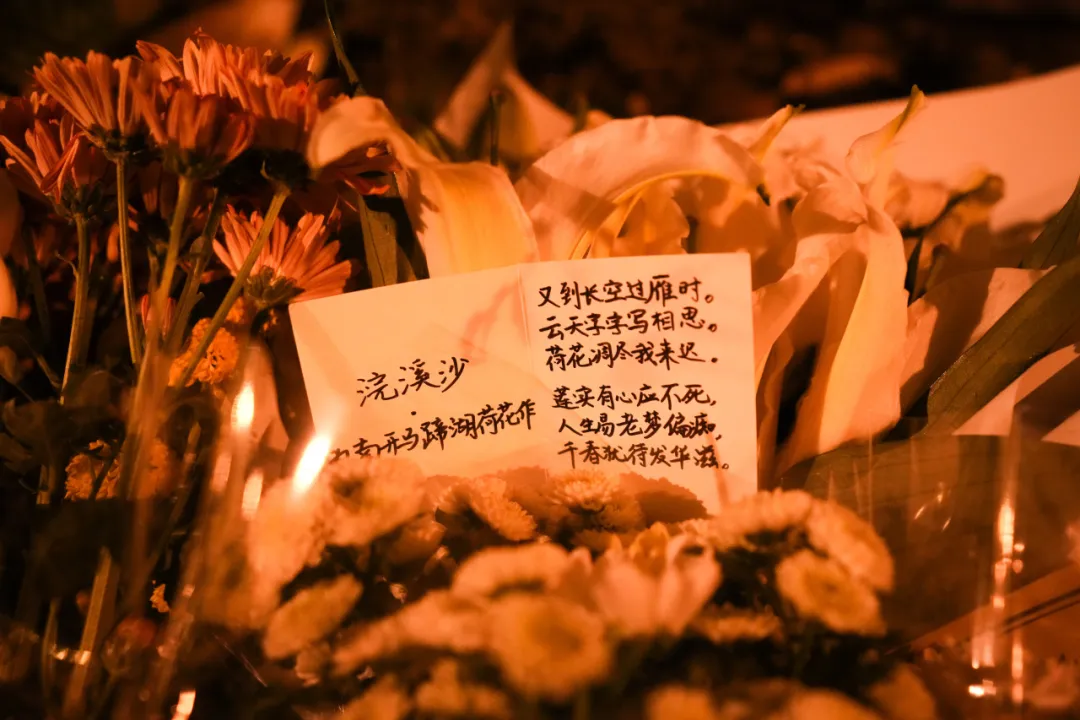 浣溪沙
·
南开马蹄湖荷花作
又到长空过雁时。
云天字字写相思。
荷花凋尽我来迟。
莲实有心应不死,
人生易老梦偏痴,
千春犹待发华滋。